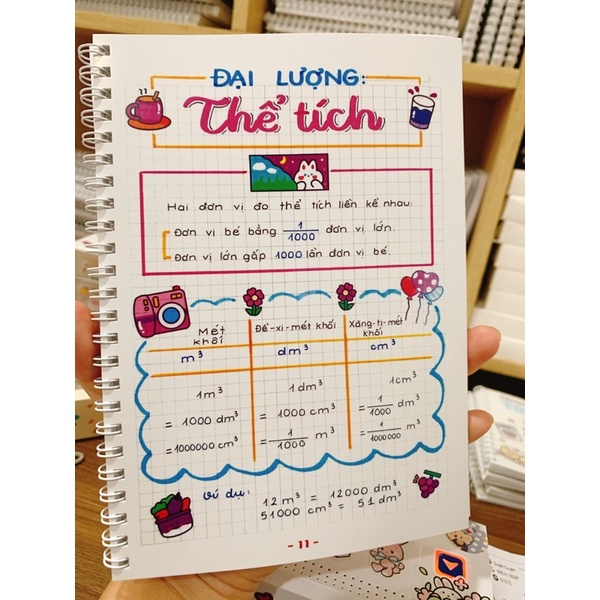 ĐẠI LƯỢNG:
Thể tích
Hai đơn vị đo thể tích liền kề nhau:
Đơn vị bé bằng 1/1000 đơn vị lớn.
Đơn vị lớn gấp 1000 lần đơn vị bé.
Mét khối
Đề-xi-mét khối
Xăng-ti-mét khối
m³
dm³
cm³
1m³
= 1000 dm³
= 1000000 cm³
1dm³
= 1000 cm³
= 1/1000 m³
1cm³
= 1/1000 dm³
= 1/1000000 m³
Ví dụ: 12m³ = 12000 dm³
51000 cm³ = 51 dm³
- 11 -